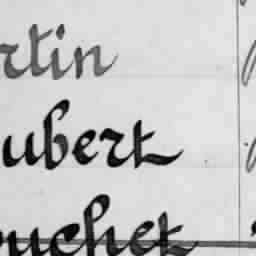 rtin
ubert
ouchet